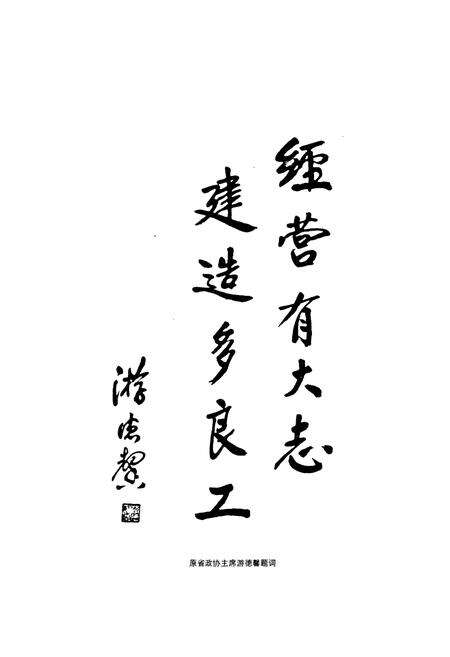 經营有大志
建造多良工
游德馨
原省政协主席游德馨题词